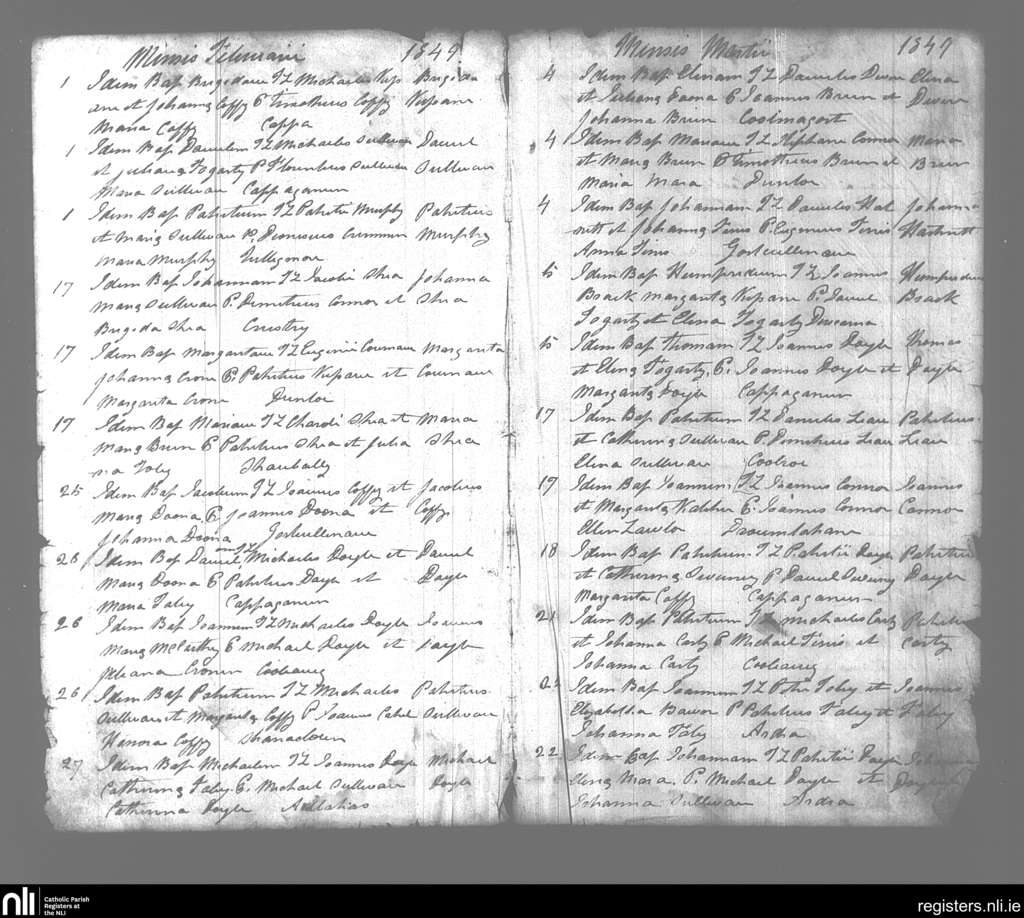 Mensis Februarii 1849
1 Idem Bap Brigidam FL Michaelis Kips Brigida
ane et Johanna Coffy P Timotheus Coffy Kispane
Maria Coffy Cappa
1 Idem Bap Danielem FL Michaelis Sullivan Daniel
et Juliana Fogarty P Florentius Sullivan Sullivan
Maria Sullivan Cappaganun
1 Idem Bap Patritium FL Patritii Murphy Patritius
et Maria Sullivan P. Dionisius Murphy
Maria Murphy
17 Idem Bap Johannam FL Jacobi Shea Johanna
Maria Sullivan P. Demitrius Connor et Shea
Brigida Shea
17 Idem Bap Margaritam FL Eugenii Margarita
Johanna Crone P. Patritius Kispane et
Margarita Crone Dunloe
17 Idem Bap Mariam FL Shea et Maria
Maria Brien P Patritius Shea et Julia Shea
na Foley Shanbally
25 Idem Bap Jacobum FL Joannis Coffy et Jacobus
Maria Doona P. Joannes Doona et Coffy
Johanna Doona Gortcullinane
26 Idem Bap Daniel FL Michaelis Doyle et Daniel
Maria Doona P Patritius Doyle et Doyle
Maria Foley Cappaganun
26 Idem Bap Joannem FL Michaelis Doyle Joannes
Maria McCarthy P Michael Doyle et Doyle
Juleana Cronin Coolbaneg
26 Idem Bap Patritium FL Michaelis Patritius
Sullivan et Margarita Coffy P Joannes Cahel Sullivan
Honora Coffy Shanaclown
27 Idem Bap Michaelem FL Joannis Doyle Michael
Catherina Foley P. Michael Sullivan Doyle
Catherina Doyle
Mensis Martii 1849
4 Idem Bap Elenam FL Danielis Elena
et Juliana P Joannes Brien et
Johanna Brien Coolmagort
4 Idem Bap Mariam FL Stephani Connor Maria
et Maria Brien P Timotheus Brien et Brien
Maria Mara Dunloe
4 Idem Bap Johannam FL Danielis Hart Johanna
nett et Johanna Finis P. Eugenius Finis Hartnett
Anna Finis Gortcullinane
5 Idem Bap Humpredum FL Joannis Humpredus
Brack Margarita Kispane P. Daniel Brack
Fogarty et Elena Fogarty
5 Idem Bap Thomam FL Joannis Doyle Thomas
et Elena Fogarty, P. Joannes Doyle et Doyle
Margarita Doyle Cappaganun
17 Idem Bap Patritium FL Danielis Lean Patritius
et Catherina Sullivan P. Demitrius Lean Lean
Elena Sullivan Coolroe
17 Idem Bap Joannem FL Joannis Connor Joannes
et Margarita P. Joannes Connor Connor
Ellen Lawlor
18 Idem Bap Patritium FL Patritii Doyle Patritius
et Catherina Sweeney P Daniel Sweeny Doyle
Margarita Coffy Cappaganun
21 Idem Bap Patritium FL Michaelis Carty Patritius
et Johanna Carty P Michael Finis et Carty
Johanna Carty Coolbaneg
Idem Bap Joannem FL Petri Foley et Joannes
P Patritius Foley et Foley
Johanna Foley Ardra
22 Idem Bap Johannam FL Patritii Doyle
Elena Mara P. Michael Doyle et Doyle
Johanna Sullivan Ardra
nli Catholic Parish
Registers at
the NLI
registers.nli.ie